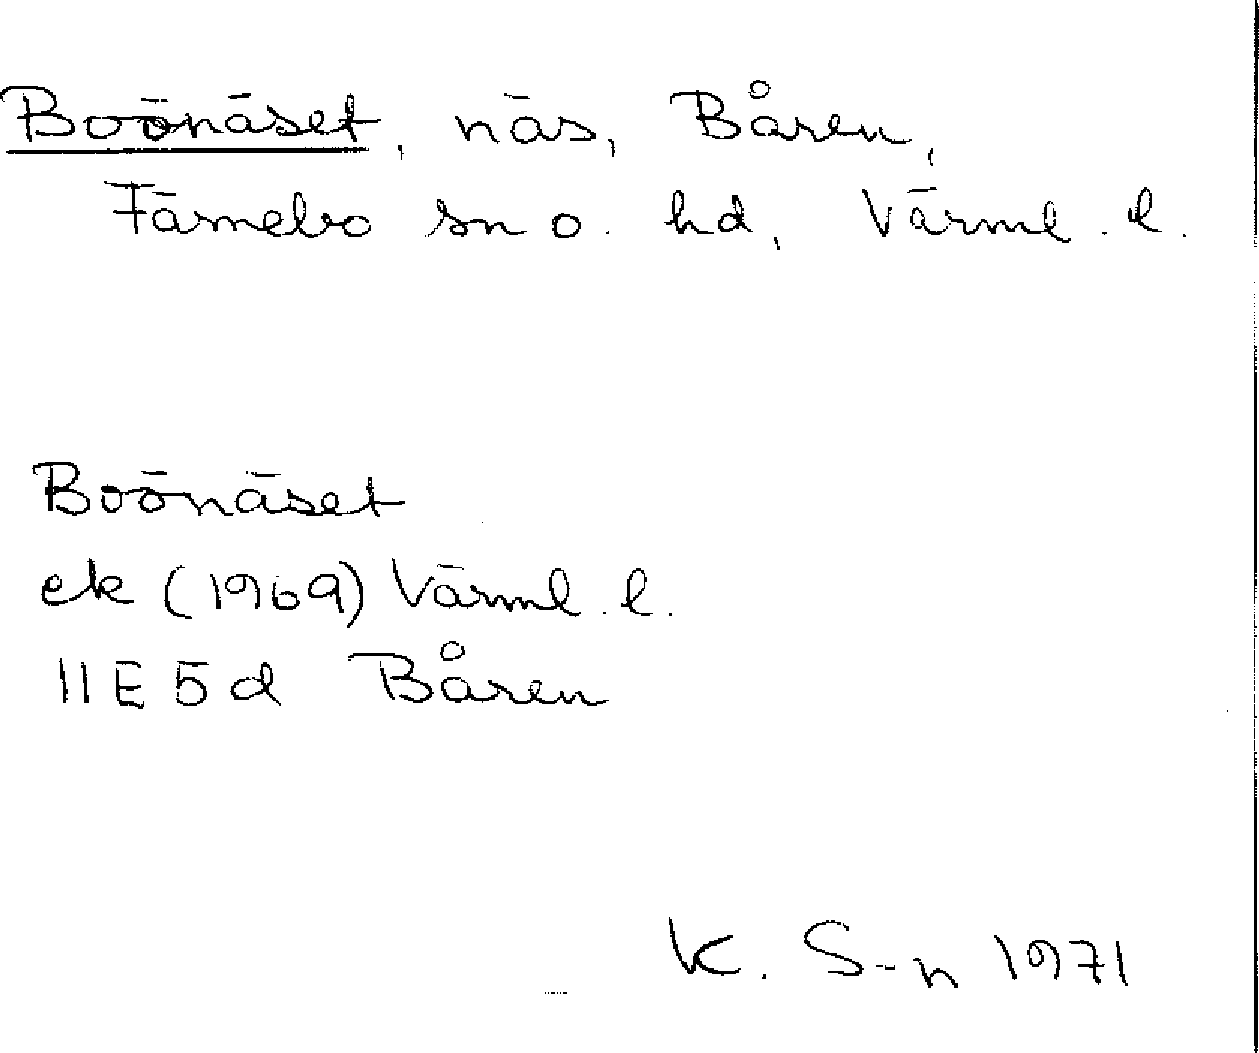 Boönäset, näs, Båren,
Färnebo sn o. hd, Värml. l.
Boönäset
ek (1969) Värml. l.
11E 5d Båren
K. S-n 1971